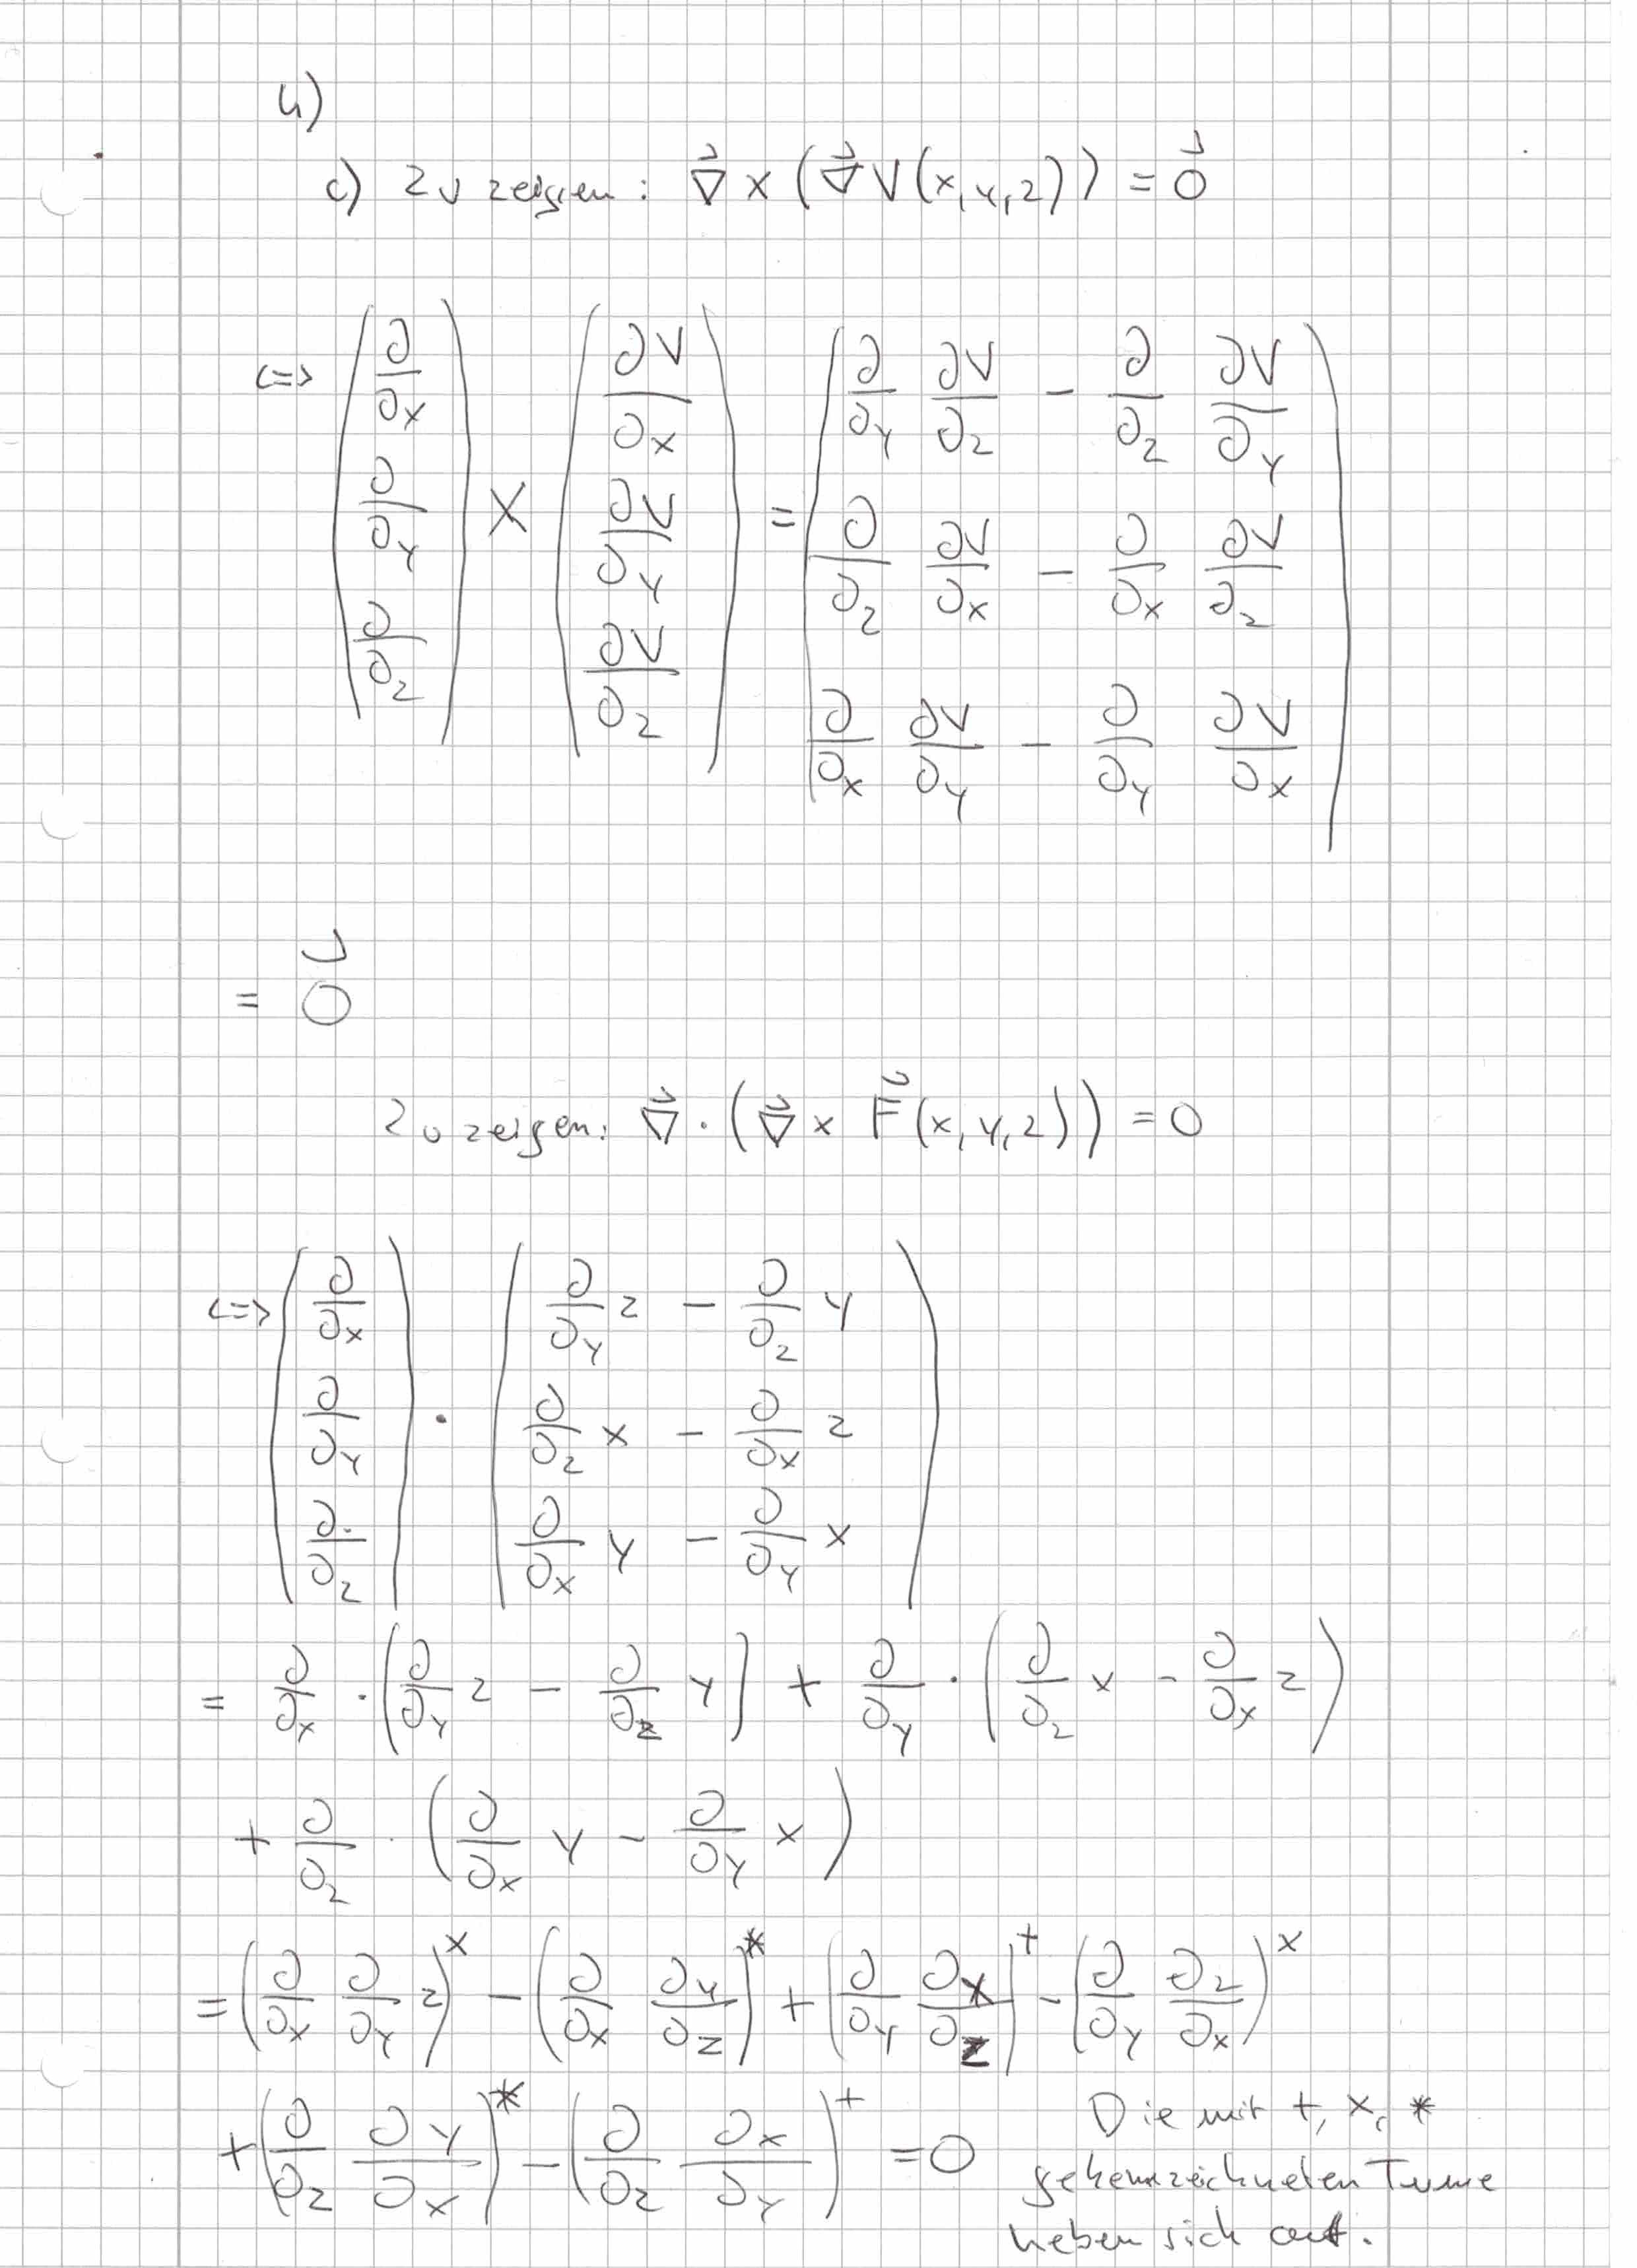 4)
c) Zu zeigen: ∇⃗ × (∇⃗ V(x,y,z)) = 0⃗
<=> (∂/∂x, ∂/∂y, ∂/∂z) × (∂V/∂x, ∂V/∂y, ∂V/∂z) = (∂/∂y ∂V/∂z − ∂/∂z ∂V/∂y, ∂/∂z ∂V/∂x − ∂/∂x ∂V/∂z, ∂/∂x ∂V/∂y − ∂/∂y ∂V/∂x)
= 0⃗
Zu zeigen: ∇⃗ · (∇⃗ × F⃗(x,y,z)) = 0
<=> (∂/∂x, ∂/∂y, ∂/∂z) · (∂/∂y z − ∂/∂z y, ∂/∂z x − ∂/∂x z, ∂/∂x y − ∂/∂y x)
= ∂/∂x · (∂/∂y z − ∂/∂z y) + ∂/∂y · (∂/∂z x − ∂/∂x z)
+ ∂/∂z · (∂/∂x y − ∂/∂y x)
= (∂/∂x ∂/∂y z)^x − (∂/∂x ∂y/∂z)^* + (∂/∂y ∂x/∂z)^+ − (∂/∂y ∂z/∂x)^x
+ (∂/∂z ∂y/∂x)^* − (∂/∂z ∂x/∂y)^+ = 0
Die mit +, x, *
gekennzeichneten Terme
heben sich auf.